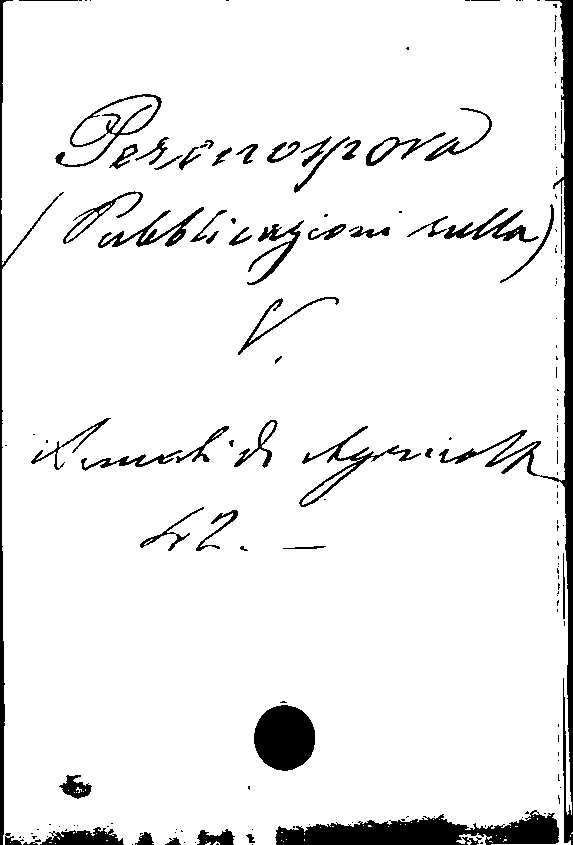 Peronospora
(Pubblicazioni sulla)
V.
Annali di Agricolt
42. —